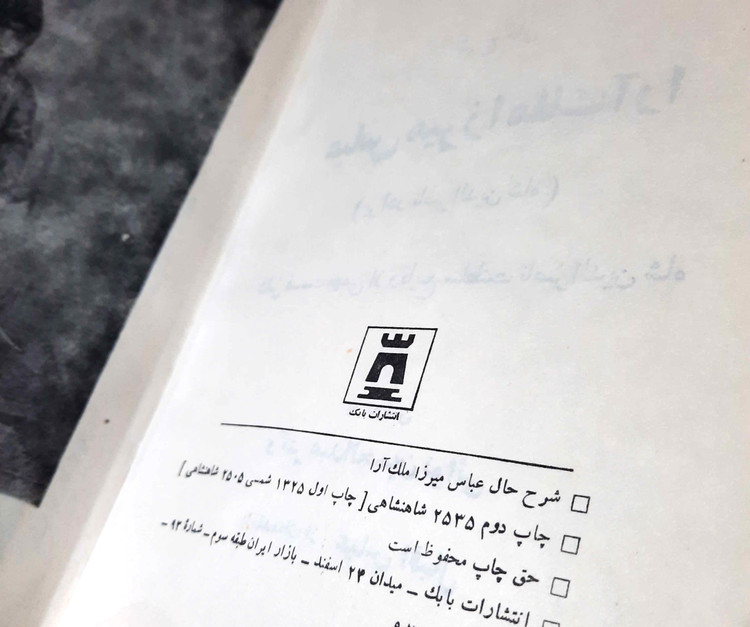 انتشارات بابک
شرح حال عباس میرزا ملک‌آرا
چاپ دوم ۲۵۳۵ شاهنشاهی [چاپ اول ۱۳۲۵ شمسی ۲۵۰۵ شاهنشاهی]
حق چاپ محفوظ است
انتشارات بابک - میدان ۲۴ اسفند - بازار ایران طبقه سوم - شمارهٔ ۹۲ -